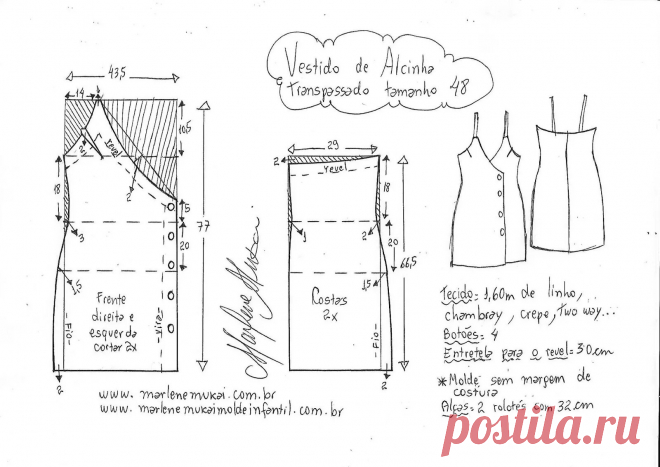 Vestido de Alcinha
e transpassado tamanho 48
43,5
14
10,5
revel
2
2
18
5
77
3
20
1,5
Frente
direita e
esquerda
cortar 2x
Fio
Vira
2
29
2
revel
18
1
2
20
66,5
1,5
Costas
2x
Fio
2
Marlene Mukai
Tecido= 1,60m de linho,
chambray, crepe, two way...
Botões= 4
Entretela para o revel= 30cm
* Molde sem margem de
costura
Alças= 2 rolotês com 32cm
www.marlenemukai.com.br
www.marlenemukaimoldeinfantil.com.br
postila.ru